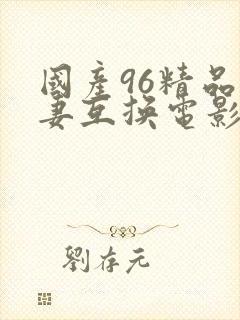 國產96精品
妻互換電影
劉存元